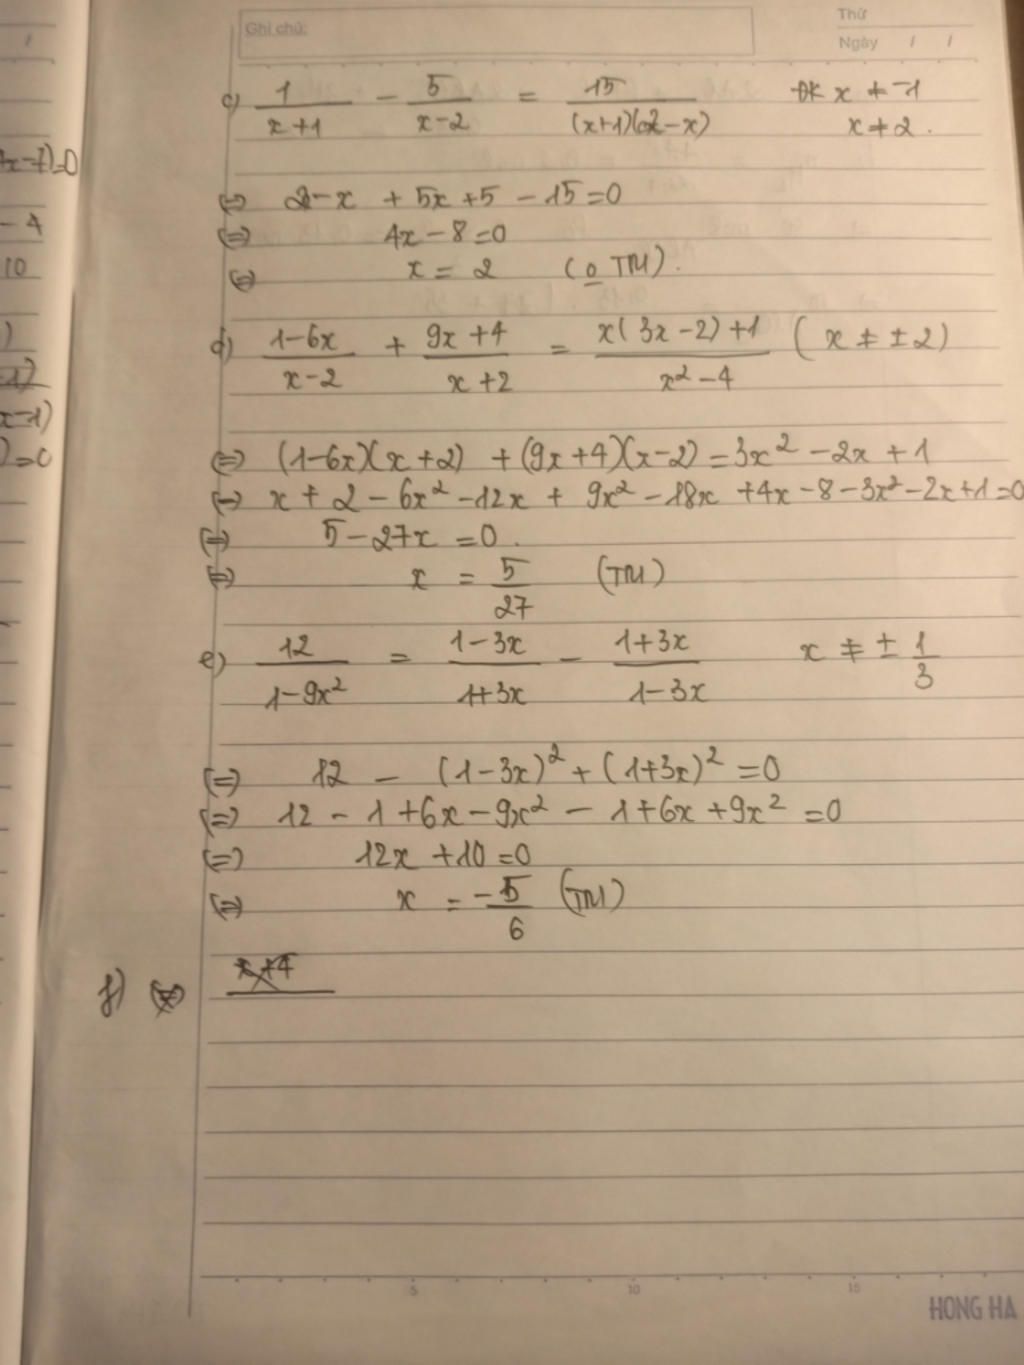 Ghi chú:
Thứ
Ngày / /
c) 1/(x+1) − 5/(x−2) = 15/((x+1)(2−x)) ĐK x ≠ −1
x ≠ 2.
⇔ 2−x + 5x+5 − 15=0
⇔ 4x−8=0
⇔ x = 2 (o TM).
d) (1−6x)/(x−2) + (9x+4)/(x+2) = (x(3x−2)+1)/(x²−4) (x ≠ ±2)
⇔ (1−6x)(x+2) + (9x+4)(x−2) = 3x² −2x + 1
⇔ x + 2 − 6x² −12x + 9x² −18x +4x −8 −3x² −2x+1=0
⇔ 5−27x =0.
⇔ x = 5/27 (TM)
e) 12/(1−9x²) = (1−3x)/(1+3x) − (1+3x)/(1−3x) x ≠ ± 1/3
⇔ 12 − (1−3x)² + (1+3x)² =0
⇔ 12 − 1 +6x −9x² − 1+6x +9x² =0
⇔ 12x +10 =0
⇔ x = −5/6 (TM)
f)
x+4
5 10 15
HONG HA
7x−7)=0
−4
10
)
−1)
x−1)
)=0